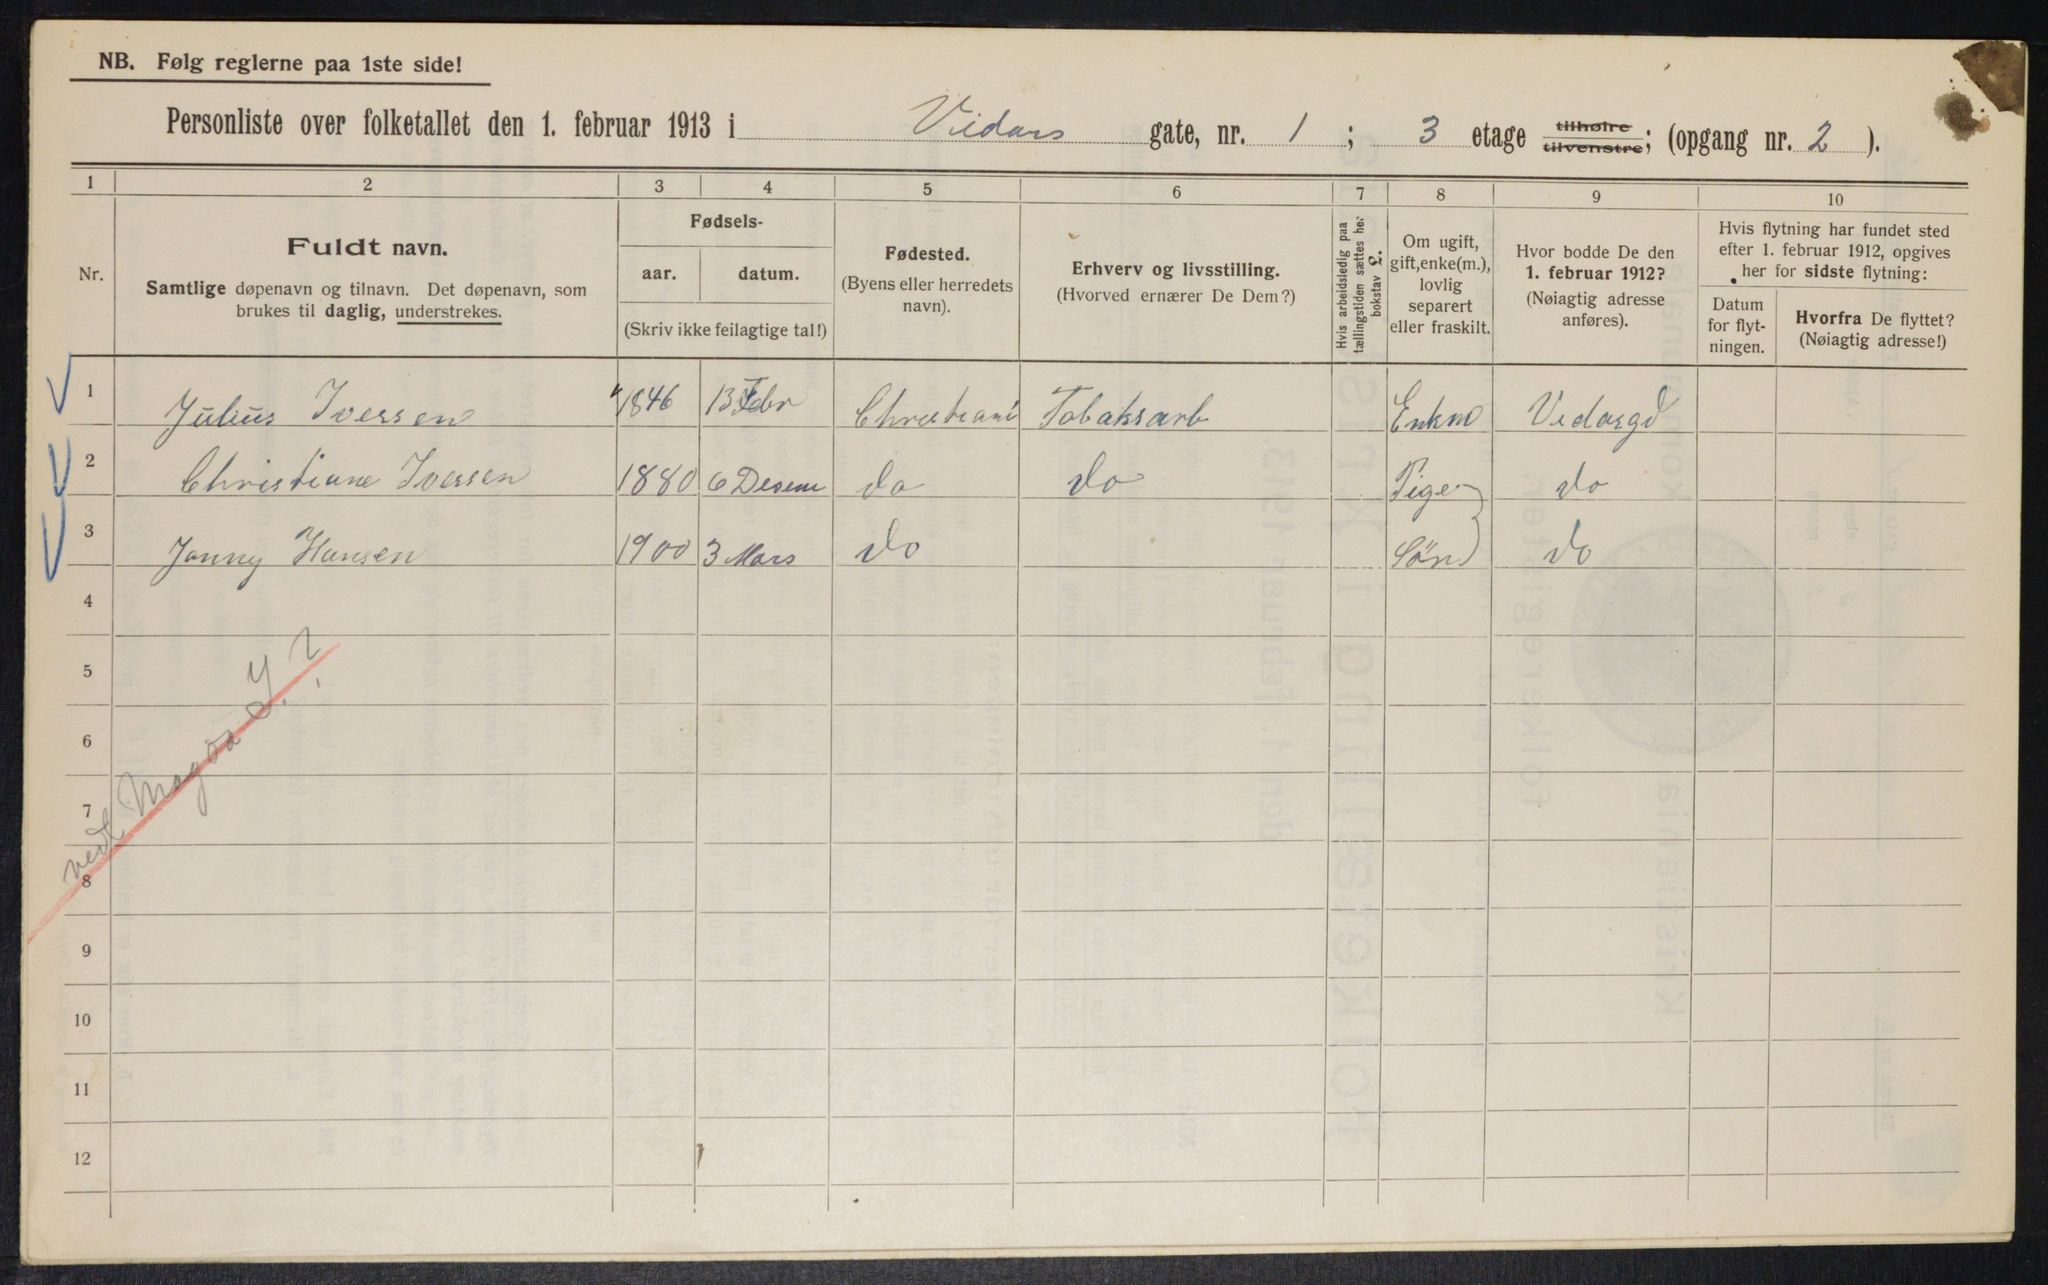 NB. Følg reglerne paa 1ste side!
Personliste over folketallet den 1. februar 1913 i Vidars gate, nr. 1 ; 3 etage tilhøire tilvenstre; (opgang nr. 2 ).
1 2 3 4 5 6 7 8 9 10
Nr.
Fuldt navn.
Samtlige døpenavn og tilnavn. Det døpenavn, som
brukes til daglig, understrekes.
Fødsels-
aar. datum.
(Skriv ikke feilagtige tal!)
Fødested.
(Byens eller herredets
navn).
Erhverv og livsstilling.
(Hvorved ernærer De Dem?)
Hvis arbeidsledig paa
tællingstiden sættes her
bokstav L.
Om ugift,
gift, enke(m.),
lovlig
separert
eller fraskilt.
Hvor bodde De den
1. februar 1912?
(Nøiagtig adresse
anføres).
Hvis flytning har fundet sted
efter 1. februar 1912, opgives
her for sidste flytning:
Datum
for flyt-
ningen.
Hvorfra De flyttet?
(Nøiagtig adresse!)
1 Julius Iversen 1846 13 Febr Christiani Tobaksarb Enkm Vidarsgd
2 Christiane Iversen 1880 6 Desem do do Pige do
3 Jonny Hansen 1900 3 Mars do Sön do
4
5
6
7
8
9
10
11
12
vedl Magda I. ?